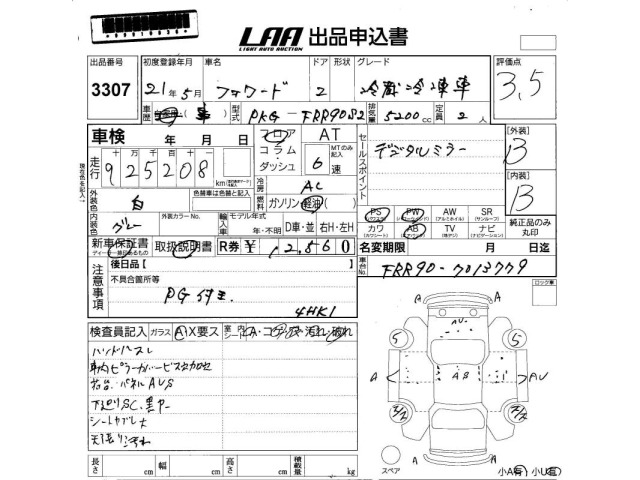 LAA 出品申込書
LIGHT AUTO AUCTION
出品番号 初度登録年月 車名 ドア 形状 グレード 評価点
3307 21年5月 フォワード 2 冷蔵冷凍車 3,5
車歴 自家用 事 型式 PKG-FRR90S2 排気量 5200cc 定員 2人
車検 年 月 日 フロア コラム ダッシュ AT MTのみ記入 6速
セールスポイント デジタルミラー
[外装] B
走行 925208 km
十 万 千 百 十
冷房 AC
[内装] B
外装色 白 色替車は色替と記入 燃料 ガソリン 軽油
内装色 グレー 外装カラーNo. 輸入車 モデル年式 年・不明 D車・並 右H・左H
PS PW AW SR 純正品のみ丸印
カワ AB TV ナビ
新車保証書 取扱説明書 R券 ¥12,560 名変期限 月 日迄
注意事項 後日品 車台No. FRR90-7013779
不具合箇所等
PG付き
4HK1
ロック車
検査員記入 ガラス A・X要ス 室内シート 汚れ・破れ
ハンドルスレ
下廻りSC.黒P
シートヤブレ大
天張り汚れ
A A AU
AS AU
5 5
長さ cm 幅 cm 高さ cm 積載量 kg
スペア
小A有 小U有